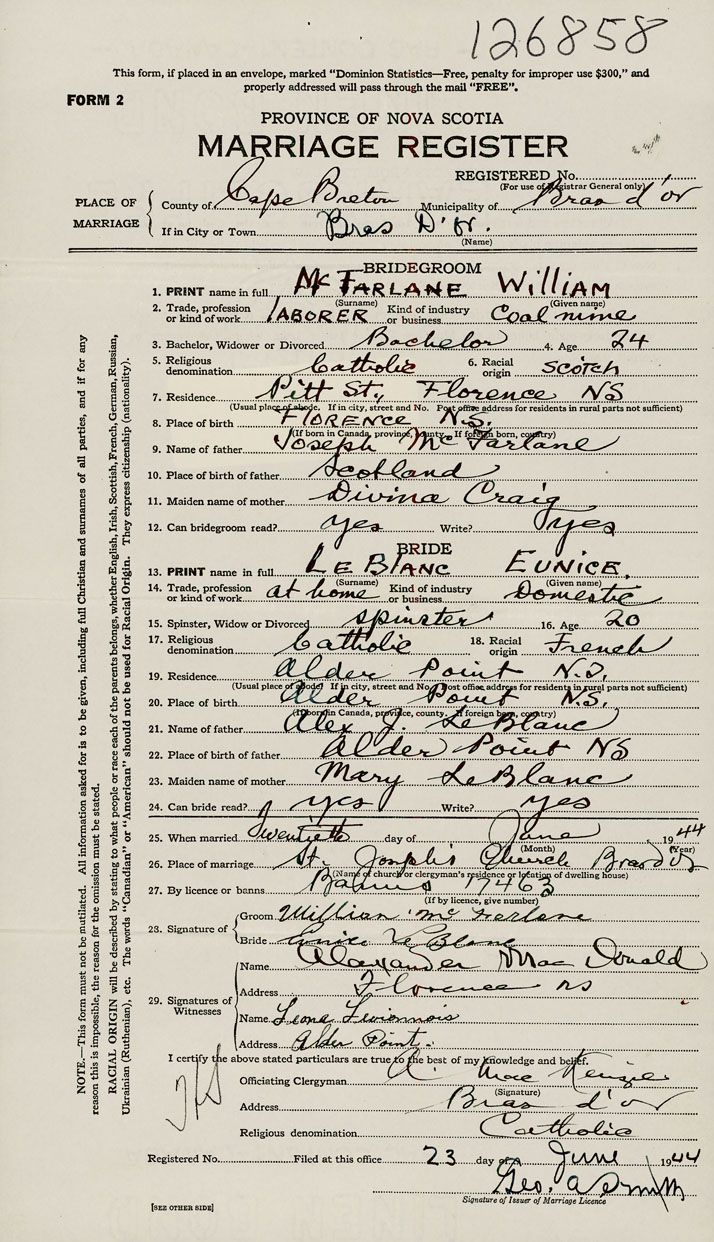 126858
This form, if placed in an envelope, marked "Dominion Statistics—Free, penalty for improper use $300," and
properly addressed will pass through the mail "FREE".
FORM 2
PROVINCE OF NOVA SCOTIA
MARRIAGE REGISTER
REGISTERED No.
(For use of Registrar General only)
PLACE OF MARRIAGE
County of Cape Breton Municipality of Bras d'or
If in City or Town Bras D'Or.
(Name)
BRIDEGROOM
1. PRINT name in full McFARLANE WILLIAM
(Surname) (Given name)
2. Trade, profession or kind of work LABORER Kind of industry or business Coal mine
3. Bachelor, Widower or Divorced Bachelor 4. Age 24
5. Religious denomination Catholic 6. Racial origin Scotch
7. Residence Pitt St., Florence NS
(Usual place of abode. If in city, street and No. Post office address for residents in rural parts not sufficient)
8. Place of birth FLORENCE N.S.
(If born in Canada, province, county. If foreign born, country)
9. Name of father Joseph McFarlane
10. Place of birth of father Scotland
11. Maiden name of mother Divina Craig
12. Can bridegroom read? yes Write? yes
BRIDE
13. PRINT name in full LEBLANC EUNICE.
(Surname) (Given name)
14. Trade, profession or kind of work at home Kind of industry or business Domestic
15. Spinster, Widow or Divorced spinster 16. Age 20
17. Religious denomination Catholic 18. Racial origin French
19. Residence Alder Point N.S.
(Usual place of abode) If in city, street and No. Post office address for residents in rural parts not sufficient)
20. Place of birth Alder Point N.S.
(If born in Canada, province, county. If foreign born, country)
21. Name of father Alex J. LeBlanc
22. Place of birth of father Alder Point NS
23. Maiden name of mother Mary LeBlanc
24. Can bride read? yes Write? yes
25. When married Twentieth day of June 1944
(Month) (Year)
26. Place of marriage St. Joseph's Church Bras d'Or
(Name of church or clergyman's residence or location of dwelling house)
27. By licence or banns Banns 17463
(If by licence, give number)
28. Signature of Groom William McFarlane
Bride Eunice Le Blanc
29. Signatures of Witnesses
Name Alexander MacDonald
Address Florence NS
Name Leona
Address Alder Point.
I certify the above stated particulars are true to the best of my knowledge and belief.
Officiating Clergyman MacKenzie
(Signature)
Address Bras d'or
Religious denomination Catholic
Registered No. Filed at this office 23 day of June 1944
Geo. A Smith
Signature of Issuer of Marriage Licence
[SEE OTHER SIDE]
NOTE.—This form must not be mutilated. All information asked for is to be given, including full Christian and surnames of all parties, and if for any
reason this is impossible, the reason for the omission must be stated.
RACIAL ORIGIN will be described by stating to what people or race each of the parents belongs, whether English, Irish, Scottish, French, German, Russian,
Ukrainian (Ruthenian), etc. The words "Canadian" or "American" should not be used for Racial Origin. They express citizenship (nationality).